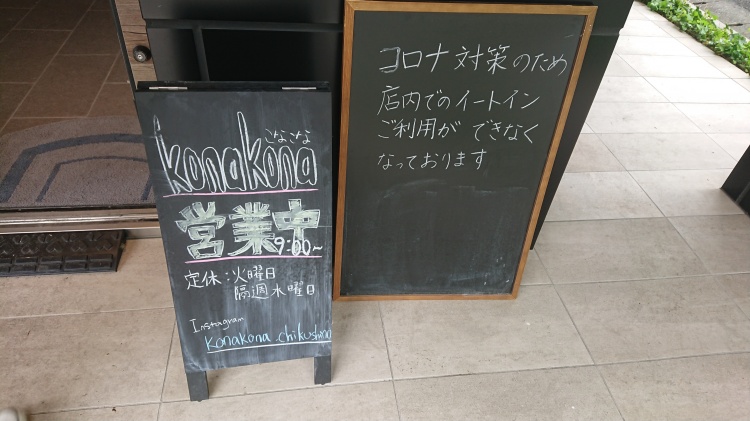 こなこな
konakona
営業中
9:00~
定休:火曜日
隔週水曜日
Instagram
konakona.chikushino
コロナ対策のため
店内でのイートイン
ご利用ができなく
なっております